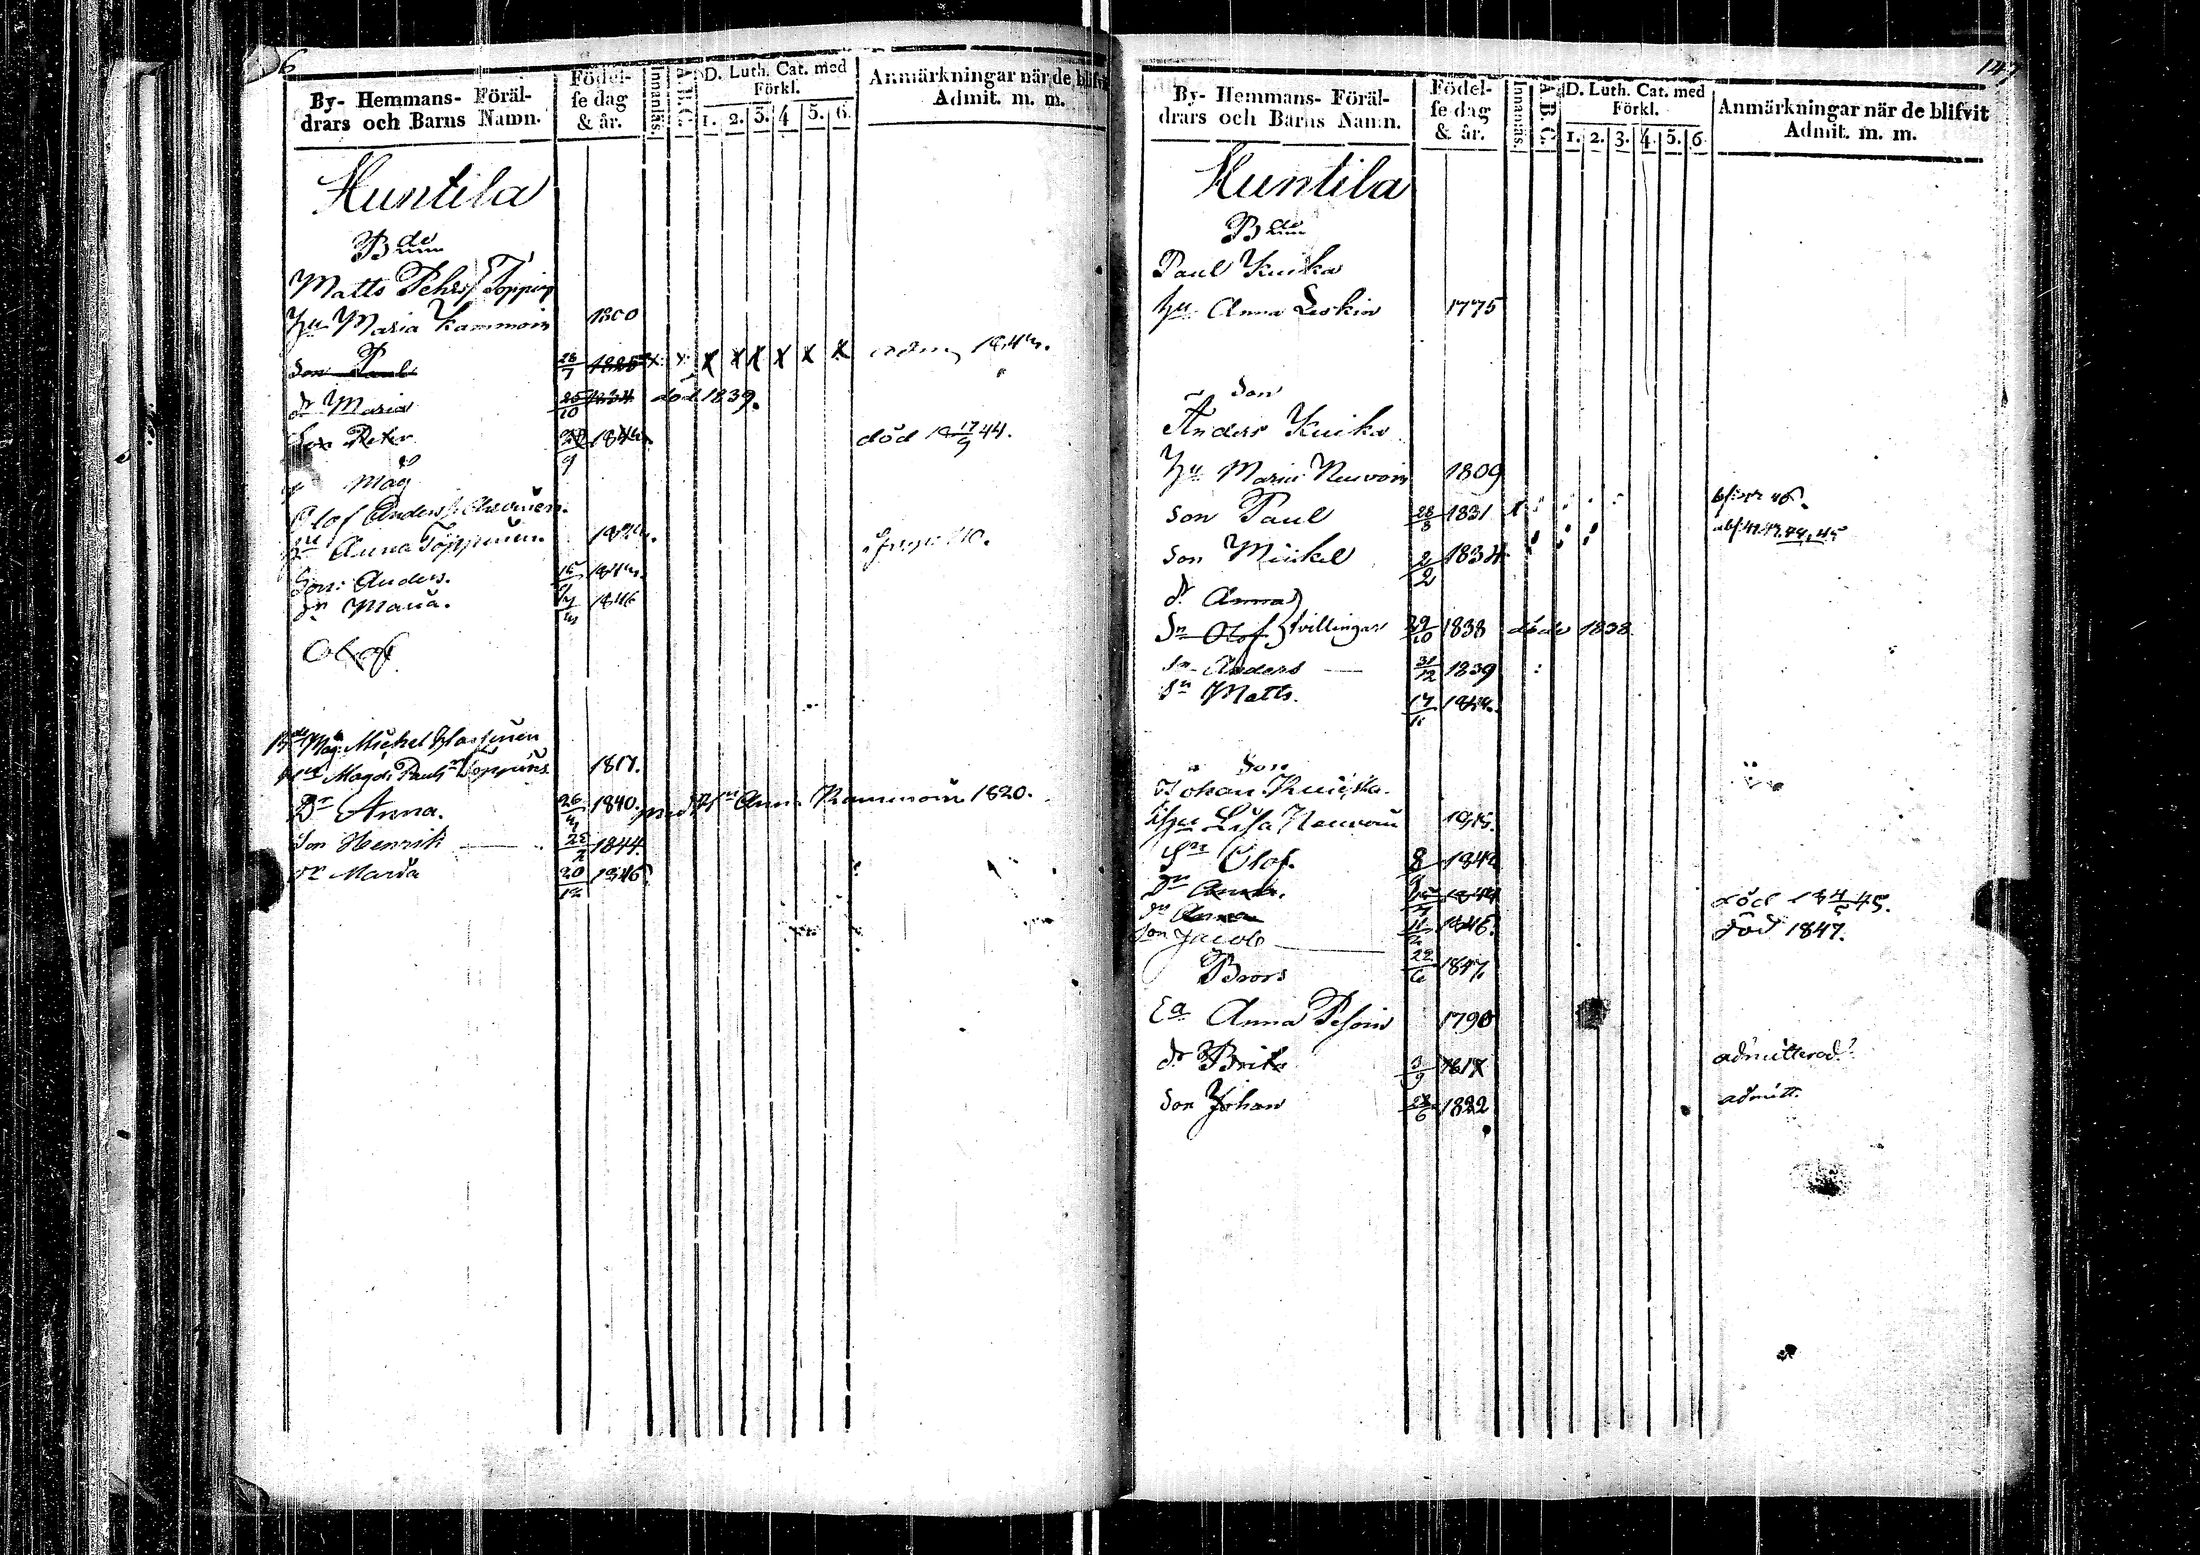 6
By- Hemmans- Föräl-
drars och Barns Namn.
Födel-
se dag
& år.
Innanläs.
A.B.C.
D. Luth. Cat. med
Förkl.
1. 2. 3. 4 5. 6
Anmärkningar när de blifvit
Admit. m. m.
Huntila
Bde
Matts Pehrss Toppin
hu Maria Kammoin 1800
Son Paul 26/7 1825 x x x x x x x x
dr Maria 25/10 1834 död 1839.
Son Peter 9 död 18 17/9 44.
Måg
Olof Anderss.
hu Anna Toppinen.
Son: Anders.
dr Maria. 1846
Olof
Bde Måg: Michel
hu Magd: Paulsdr Toppins 1817.
Dr Anna. 26/4 1840. Anna Rammoin 1820.
Son Henrik 25/2 1844.
dr Maria 20/12 1846.
147
By- Hemmans- Föräl-
drars och Barns Namn.
Födel-
se dag
& år.
Innanläs.
A.B.C.
D. Luth. Cat. med
Förkl.
1. 2. 3. 4. 5. 6
Anmärkningar när de blifvit
Admit. m. m.
Huntila
Bde
Paul Kuika
hu Anna Leskin 1775
Son
Anders Kuika
hu Maria Neuvoin 1809
Son Paul 28/8 1831
Son Mickel 2/2 1834
dr Anna
Sn Olof tvillingar 29/10 1838 döde 1838
Sn Anders 31/12 1839
Sn Matts. 17/11
Son
Johan Kuika.
hu Lisa Neuvoin
Sn Olof. 8 1842
Dr Anna. 1844 död 18 4/5 45.
dr Anna 1846. död 1847.
Son Jacob 22/6 1847
Brors
Ea Anna Pesoin 1790
dr Brita 3/9 1817 admitterad.
Son Johan 28/6 1822 admitt.